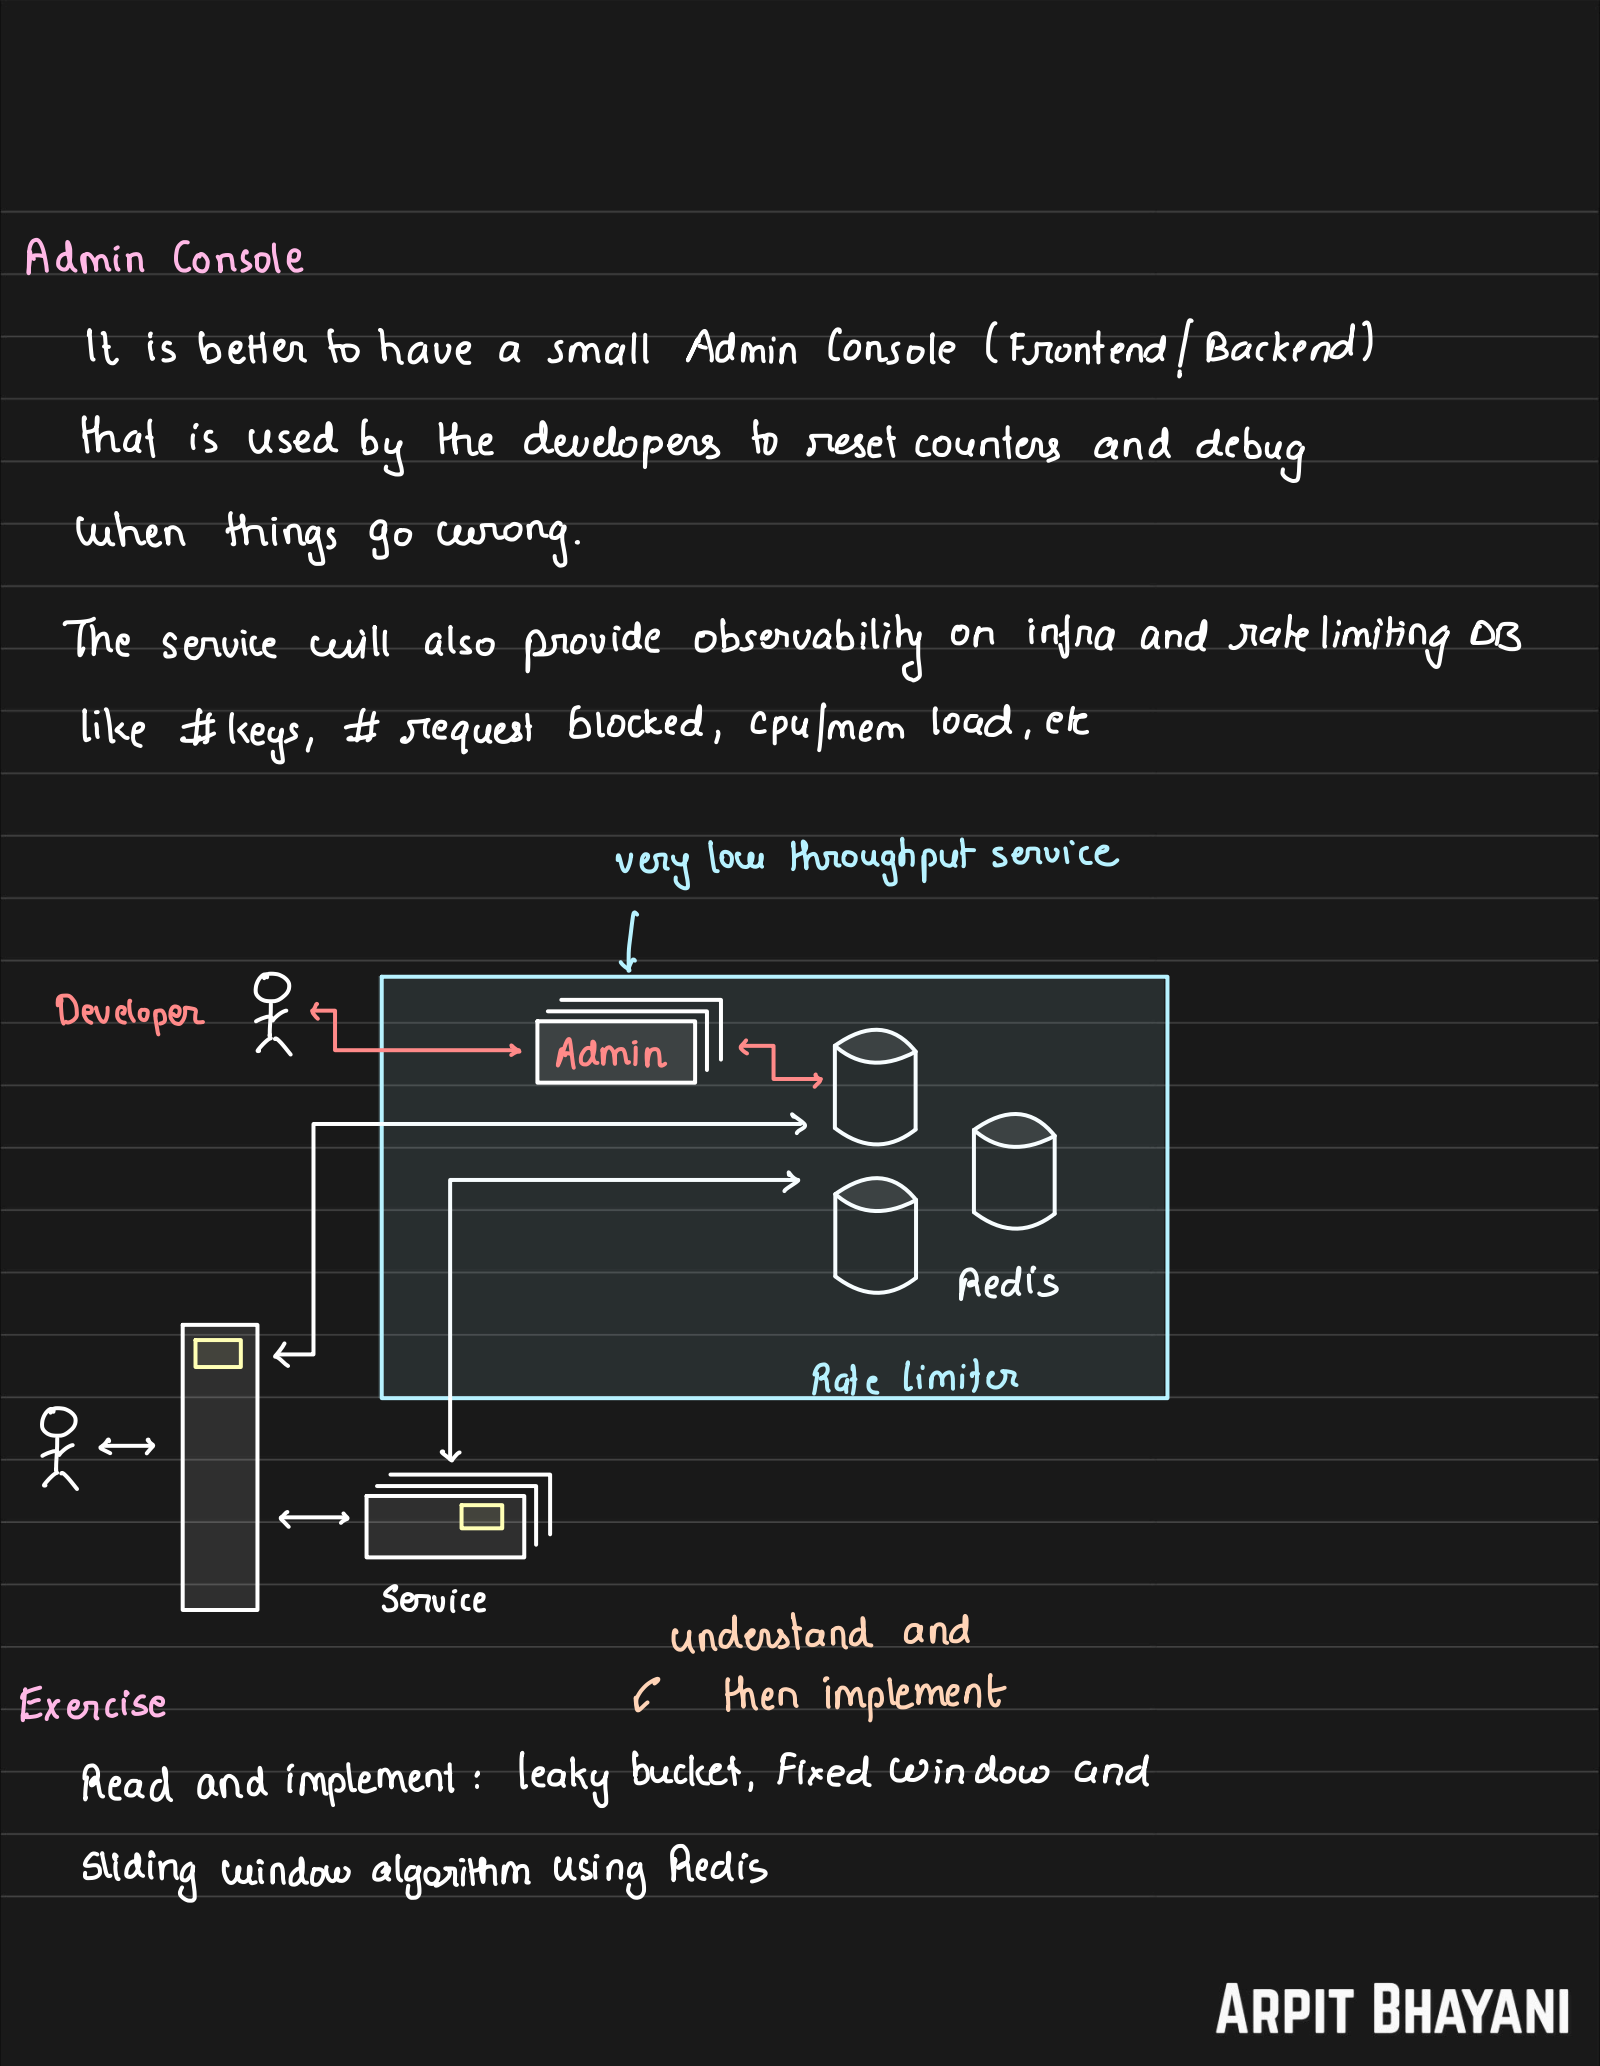 Admin Console
It is better to have a small Admin Console (Frontend/Backend)
that is used by the developers to reset counters and debug
when things go wrong.
The service will also provide observability on infra and rate limiting DB
like # keys, # request blocked, cpu/mem load, etc
very low throughput service
Developer
Admin
Redis
Rate limiter
Service
understand and
then implement
Exercise
Read and implement: leaky bucket, Fixed Window and
Sliding window algorithm using Redis
ARPIT BHAYANI